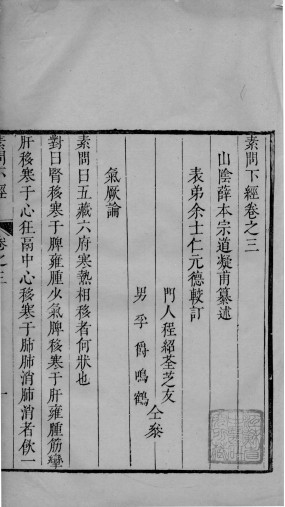 素問下經卷之三
山陰薛本宗道凝甫纂述
表弟余士仁元德較訂
門人程紹荃芝友
男孚爵鳴鶴
仝叅
氣厥論
素問曰五藏六府寒熱相移者何狀也
對曰腎移寒于脾雍腫少氣脾移寒于肝雍腫筋攣
肝移寒于心狂鬲中心移寒于肺肺消肺消者飲一
素問下經
卷之三
一